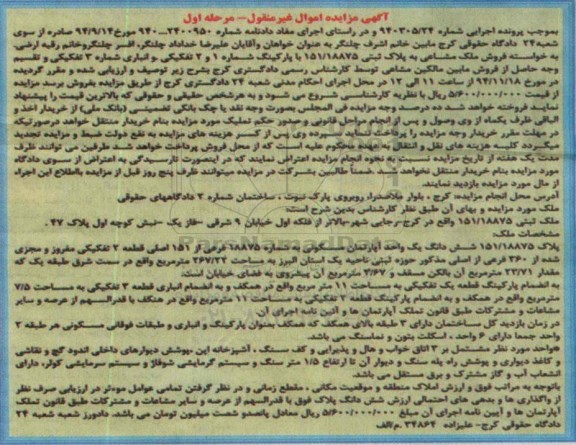 آگهی مزایده اموال غیرمنقول- مرحله اول
بموجب پرونده اجرایی شماره ۹۴۰۳۰۵/۲۴ و در راستای اجرای مفاد دادنامه شماره ۲۴۰۰۹۵۰...۹۴۰ مورخ ۹۴/۹/۱۴ صادره از سوی
شعبه ۲۴ دادگاه حقوقی کرج مابین خانم اشرف چلنگر به عنوان خواهان وآقایان علیرضا خداداد چلنگر، افسر چلنگروخانم رقیه ارضی.
به خواسته فروش ملک مشاعی به پلاک ثبتی ۱۵۱/۱۸۸۷۵ با پارکینگ شماره ۱ و ۲ تفکیکی و انباری شماره ۳ تفکیکی و تقسیم
وجه حاصل از فروش مابین مالکین مشاعی توسط کارشناس رسمی دادگستری کرج بشرح زیر توصیف و ارزیابی شده و مقرر گردیده
در مورخ ۹۴/۱۱/۱۸ از ساعت ۱۱ الی ۱۲ در محل اجرای احکام مدنی شعبه ۲۴ دادگستری کرج از طریق مزایده بفروش برسد مزایده
از قیمت ۵/۶۰۰/۰۰۰/۰۰۰ ریال با نظریه کارشناسی شروع می شود و به هرشخص حقیقی و حقوقی که بالاترین قیمت را پیشنهاد
نماید فروخته خواهد شد ده درصد وجه مزایده فی المجلس بصورت وجه نقد یا چک بانکی تضمینی (بانک ملی) از خریدار اخذ و
الباقی ظرف یکماه از وی وصول و پس از انجام مراحل قانونی و صدور حکم تملیک مورد مزایده بنام خریدار منتقل خواهد شد درصورتیکه
در مهلت مقرر خریدار وجه مزایده را پرداخت ننماید سپرده وی پس از کسر هزینه های مزایده به نفع دولت ضبط و مزایده تجدید
میگردد کلیه هزینه های نقل و انتقال به عهده محکوم علیه است که از محل فروش پرداخت خواهد شد طرفین می توانند ظرف
مدت یک هفته از تاریخ مزایده نسبت به نحوه انجام مزایده اعتراض نمایند که در اینصورت تارسیدگی به اعتراض از سوی دادگاه
مورد مزایده بنام خریدار منتقل نخواهد شد .ضمناً طالبین بشرکت در مزایده میتوانند ظرف پنج روز قبل از مزایده بااطلاع این اجراء
از مال مورد مزایده بازدید نمایند.
آدرس محل انجام مزایده: کرج . بلوار ملاصدرا، روبروی پارک نبوت . ساختمان شماره ۳ دادگاههای حقوقی
ملک مورد مزایده و بهای آن طبق نظر کارشناس بدین شرح است:
ملک ثبتی ۱۵۱/۱۸۸۷۵ واقع در کرج-رجایی شهر-بالاتر از فلکه اول خیابان ۹ شرقی -فاز یک -نبش کوچه اول پلاک ۴۷ .
مشخصات ملک:
پلاک ۱۵۱/۱۸۸۷۵ شش دانگ یک واحد آپارتمان مسکونی به شماره ۱۸۸۷۵ فرعی از ۱۵۱ اصلی قطعه ۲ تفکیکی مفروز و مجزی
شده از ۳۶۰ فرعی از اصلی مذکور حوزه ثبتی ناحیه یک استان البرز به مساحت ۲۶۷/۲۲ مترمربع واقع در سمت شرق طبقه یک که
مقدار ۲۳/۷۱ مترمربع آن بالکن مسقف و ۳/۶۷ مترمربع آن پیشروی به فضای خیابان است:
به انضمام پارکینگ قطعه یک تفکیکی به مساحت ۱۱ متر مربع واقع در همکف و به انضمام انباری قطعه ۳ تفکیکی به مساحت ۷/۵
مترمربع واقع در همکف و به انضمام پارکینگ قطعه ۲ تفکیکی به مساحت ۱۱ مترمربع واقع در همکف با قدرالسهم از عرصه و سایر
مشاعات و مشترکات طبق قانون تملک آپارتمان ها و آئین نامه اجرای آن
در زمان بازدید کل ساختمان دارای ۳ طبقه بالای همکف که همکف بعنوان پارکینگ و انباری و طبقات فوقانی مسکونی هر طبقه ۲
واحد جمعا دارای ۶ واحد ، اسکلت بتون و نماسنگ می باشد.
هواحد مورد نظر مشتمل بر ۳ اتاق خواب و هال و پذیرایی و کف سنگ ، آشپزخانه اپن ،پوشش دیوارهای داخلی اندود گچ و نقاشی
و کاغذ دیواری و پوشش راه پله سنگ و دیوار آن تا ارتفاع ۱/۵ متر سنگ و سیستم گرمایشی شوفاژ و سیستم سرمایشی کولر، دارای
انشعاب آب و گاز مشترک و برق مستقل می باشد.
باتوجه به مراتب فوق و ارزش املاک منطقه و موقعیت مکانی ، مقطع زمانی و در نظر گرفتن تمامی عوامل موءثر در ارزیابی صرف نظر
از واگذاری ها و بدهی های احتمالی ارزش شش دانگ پلاک فوق با قدرالسهم از عرصه و سایر مشاعات و مشترکات طبق قانون تملک
آپارتمان ها و آیین نامه اجرای آن مبلغ ۵/۶۰۰/۰۰۰/۰۰۰ ریال معادل پانصدو شصت میلیون تومان می باشد. دادورز شعبه شعبه ۲۴
دادگاه حقوقی کرج- علیزاده ۳۴۸۶۴ .م/الف